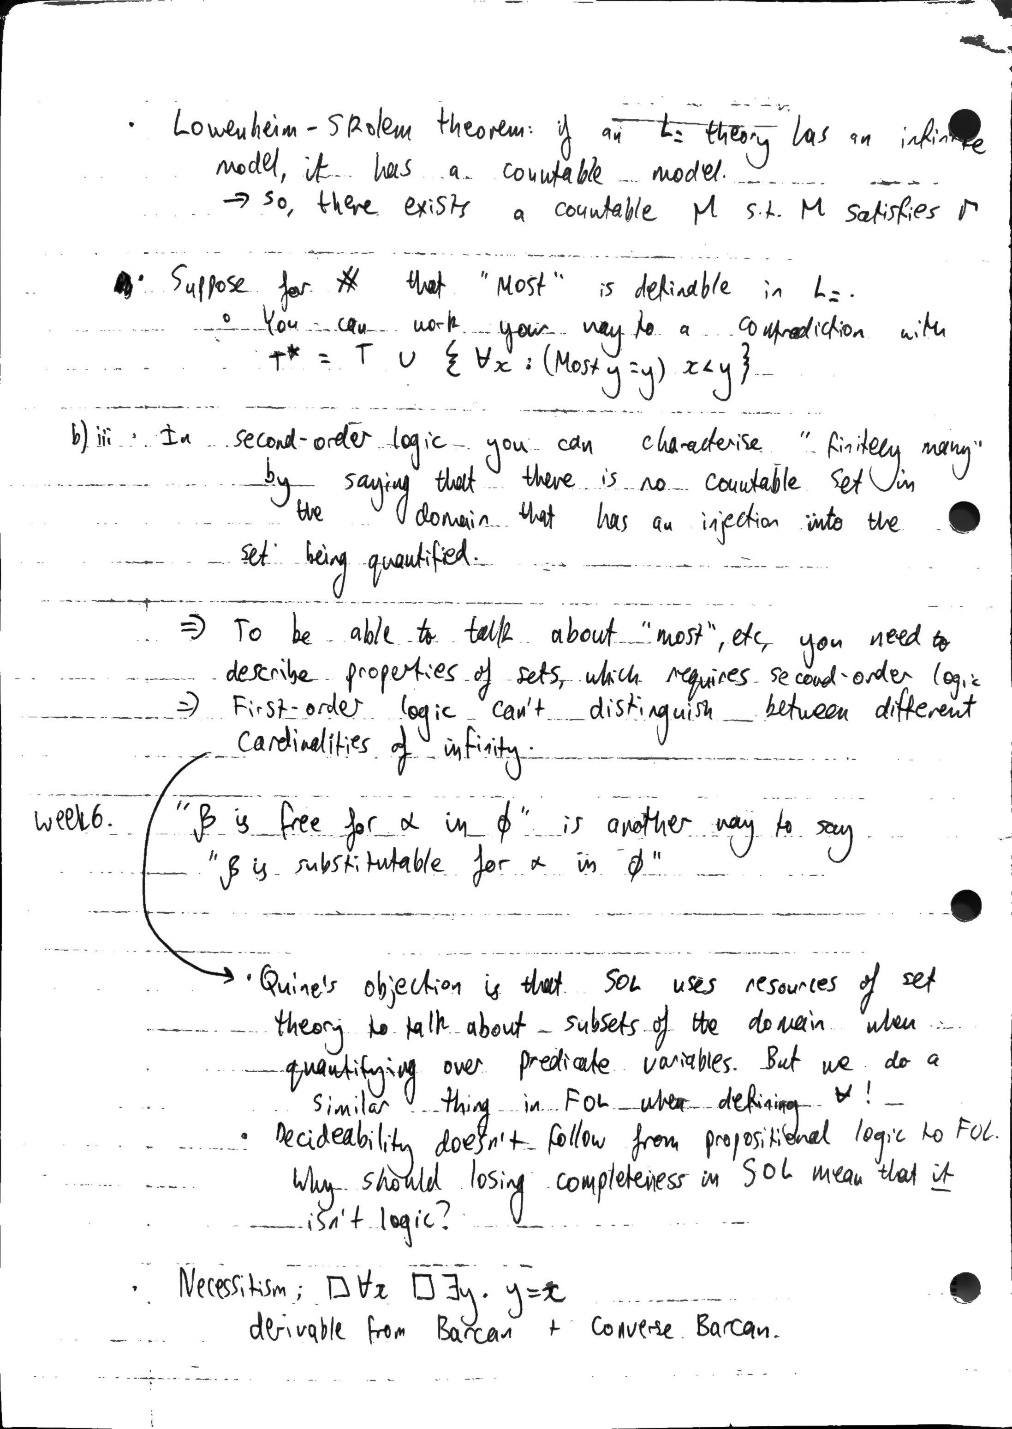 · Lowenheim-Skolem theorem: if an L= theory has an infinite
model, it has a countable model.
→ so, there exists a countable M s.t. M satisfies Γ
· Suppose for # that "Most" is definable in L=.
∘ You can work your way to a contradiction with
T* = T ∪ { ∀x : (Most y =y) x<y}
b) iii · In second-order logic you can characterise "finitely many"
by saying that there is no countable set in
the domain that has an injection into the
set being quantified.
⇒ To be able to talk about "most", etc, you need to
describe properties of sets, which requires second-order logic
⇒ First-order logic can't distinguish between different
cardinalities of infinity.
week 6. "β is free for α in ϕ" is another way to say
"β is substitutable for α in ϕ"
· Quine's objection is that SOL uses resources of set
theory to talk about subsets of the domain when
quantifying over predicate variables. But we do a
similar thing in FOL when defining ∀!
· Decideability doesn't follow from propositional logic to FOL.
Why should losing completeness in SOL mean that it
isn't logic?
· Necessitism; □∀x □∃y. y=x
derivable from Barcan + Converse Barcan.